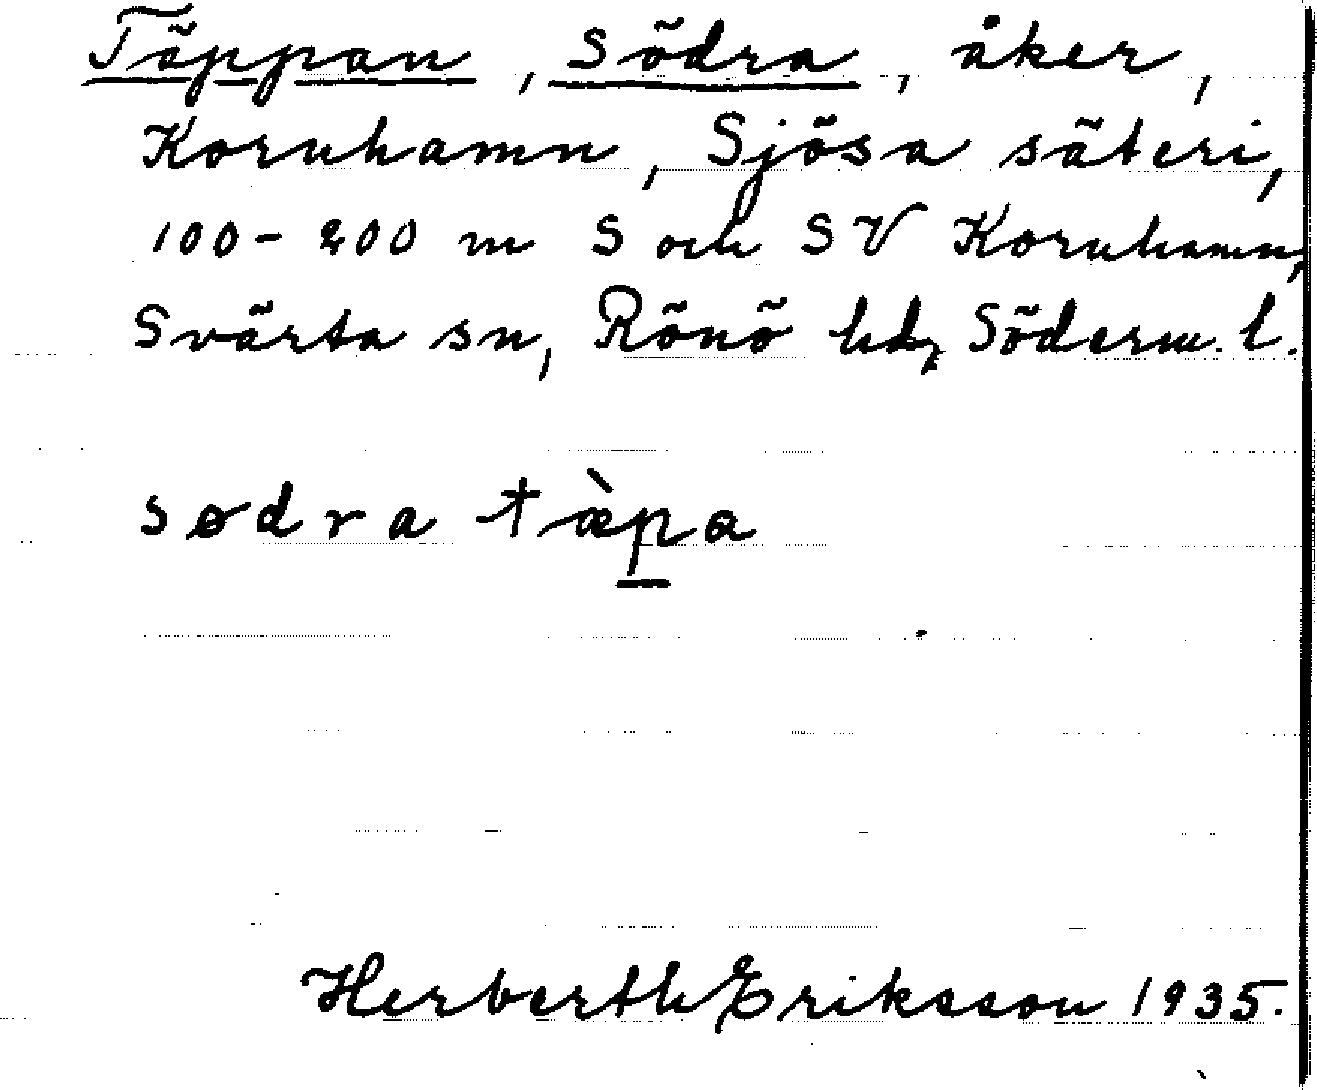 Täppan, Södra, åker,
Koruhamn, Sjösa säteri,
100-200 m S och SV Koruhamn,
Svärta sn, Rönö hd, Söderm. l.
sødra tæ̀pa
Herberth Eriksson 1935.